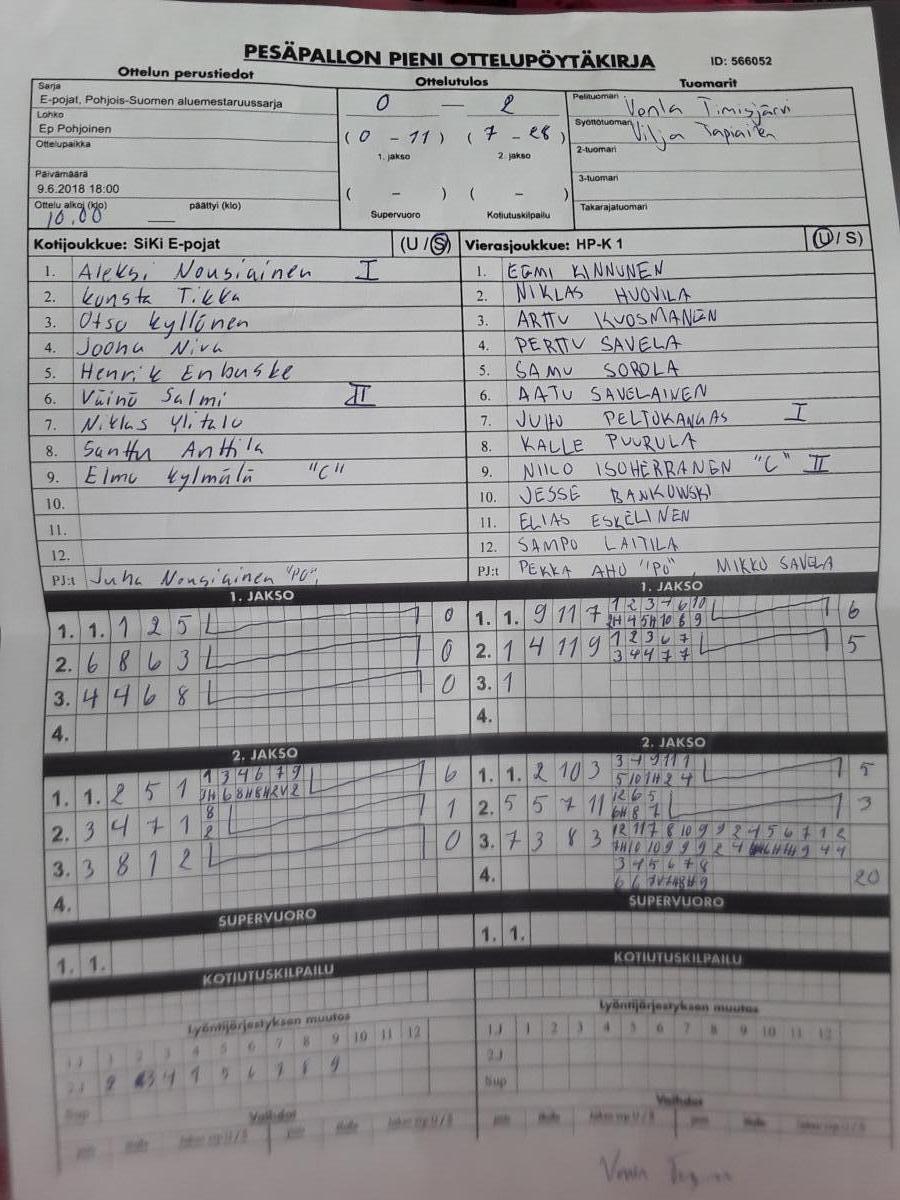 PESÄPALLON PIENI OTTELUPÖYTÄKIRJA
ID: 566052
Ottelun perustiedot
Ottelutulos
Tuomarit
Sarja
E-pojat, Pohjois-Suomen aluemestaruussarja
Lohko
Ep Pohjoinen
Ottelupaikka
Päivämäärä
9.6.2018 18:00
Ottelu alkoi (klo)
päättyi (klo)
10.00
0 — 2
(0 - 11) (7 - 28)
1. jakso 2. jakso
( - ) ( - )
Supervuoro Kotiutuskilpailu
Pelituomari Venla Timisjärvi
Syöttötuomari Vilja Tapiainen
2-tuomari
3-tuomari
Takarajatuomari
Kotijoukkue: SiKi E-pojat (U / S)
1. Aleksi Nousiainen I
2. Konsta Tikka
3. Otso Kyllönen
4. Joona Niva
5. Henrik Enbuske
6. Väinö Salmi II
7. Niklas Ylitalo
8. Santtu Anttila
9. Elmo Kylmälä "C"
10.
11.
12.
PJ:t Juha Nousiainen "PO",
Vierasjoukkue: HP-K 1 (U / S)
1. EEMI KINNUNEN
2. NIKLAS HUOVILA
3. ARTTU KUOSMANEN
4. PERTTU SAVELA
5. SAMU SOROLA
6. AATU SAVELAINEN
7. JUHO PELTOKANGAS I
8. KALLE PUURULA
9. NIILO ISOHERRANEN "C" II
10. JESSE BANKOWSKI
11. ELIAS ESKELINEN
12. SAMPO LAITILA
PJ:t PEKKA AHO "PO", MIKKO SAVELA
1. JAKSO
1. 1. 1 2 5 0
2. 6 8 6 3 0
3. 4 4 6 8 0
4.
1. JAKSO
1. 1. 9 11 7 6
2. 1 4 11 9 1 2 3 6 7 5
3 4 4 7 7
3. 1
4.
2. JAKSO
1. 1. 2 5 1 1 3 4 6 7 9 6
2. 3 4 7 1 8 1
2
3. 3 8 1 2 0
4.
2. JAKSO
1. 1. 2 10 3 5
2. 5 5 7 11 12 6 5 3
3. 7 3 8 3 12 11 7 8 10 9 9 2 4 5 6 7 1 2
4. 3 4 5 6 7 8
20
SUPERVUORO
1. 1.
SUPERVUORO
1. 1.
KOTIUTUSKILPAILU
KOTIUTUSKILPAILU
Lyöntijärjestyksen muutos
1J 1 2 3 4 5 6 7 8 9 10 11 12
2J
Sup
Vaihdot
Lyöntijärjestyksen muutos
1J 1 2 3 4 5 6 7 8 9 10 11 12
2J
Sup
Vaihdot